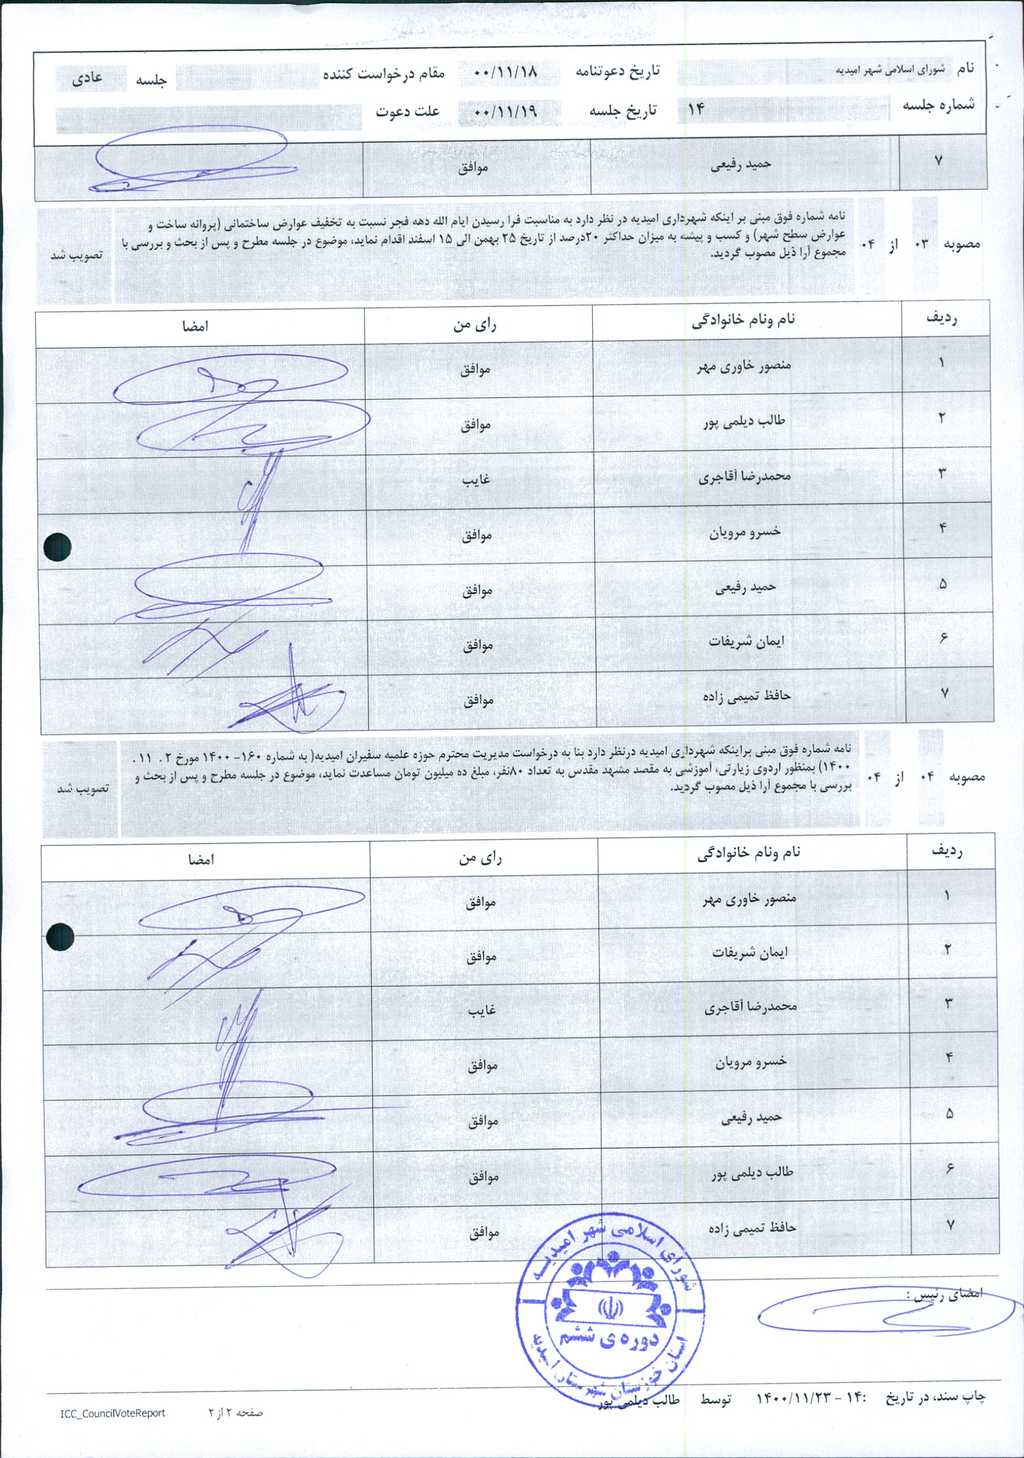 نام شورای اسلامی شهر امیدیه تاریخ دعوتنامه ۰۰/۱۱/۱۸ مقام درخواست کننده جلسه عادی
شماره جلسه ۱۴ تاریخ جلسه ۰۰/۱۱/۱۹ علت دعوت
۷ حمید رفیعی موافق
مصوبه ۰۳ از ۰۴
نامه شماره فوق مبنی بر اینکه شهرداری امیدیه در نظر دارد به مناسبت فرا رسیدن ایام الله دهه فجر نسبت به تخفیف عوارض ساختمانی (پروانه ساخت و
عوارض سطح شهر) و کسب و پیشه به میزان حداکثر ۲۰درصد از تاریخ ۲۵ بهمن الی ۱۵ اسفند اقدام نماید، موضوع در جلسه مطرح و پس از بحث و بررسی با
مجموع آرا ذیل مصوب گردید.
تصویب شد
ردیف نام ونام خانوادگی رای من امضا
۱ منصور خاوری مهر موافق
۲ طالب دیلمی پور موافق
۳ محمدرضا آقاجری غایب
۴ خسرو مرویان موافق
۵ حمید رفیعی موافق
۶ ایمان شریفات موافق
۷ حافظ تمیمی زاده موافق
مصوبه ۰۴ از ۰۴
نامه شماره فوق مبنی براینکه شهرداری امیدیه درنظر دارد بنا به درخواست مدیریت محترم حوزه علمیه سفیران امیدیه( به شماره ۱۶۰- ۱۴۰۰ مورخ ۲ . ۱۱ .
۱۴۰۰) بمنظور اردوی زیارتی، آموزشی به مقصد مشهد مقدس به تعداد ۸۰نفر، مبلغ ده میلیون تومان مساعدت نماید، موضوع در جلسه مطرح و پس از بحث و
بررسی با مجموع آرا ذیل مصوب گردید.
تصویب شد
ردیف نام ونام خانوادگی رای من امضا
۱ منصور خاوری مهر موافق
۲ ایمان شریفات موافق
۳ محمدرضا آقاجری غایب
۴ خسرو مرویان موافق
۵ حمید رفیعی موافق
۶ طالب دیلمی پور موافق
۷ حافظ تمیمی زاده موافق
امضای رئیس :
شورای اسلامی شهر امیدیه
دوره ی ششم
استان خوزستان شهرستان امیدیه
چاپ سند، در تاریخ :۱۴ - ۱۴۰۰/۱۱/۲۳ توسط طالب دیلمی پور
صفحه ۲ از ۲
ICC_CouncilVoteReport